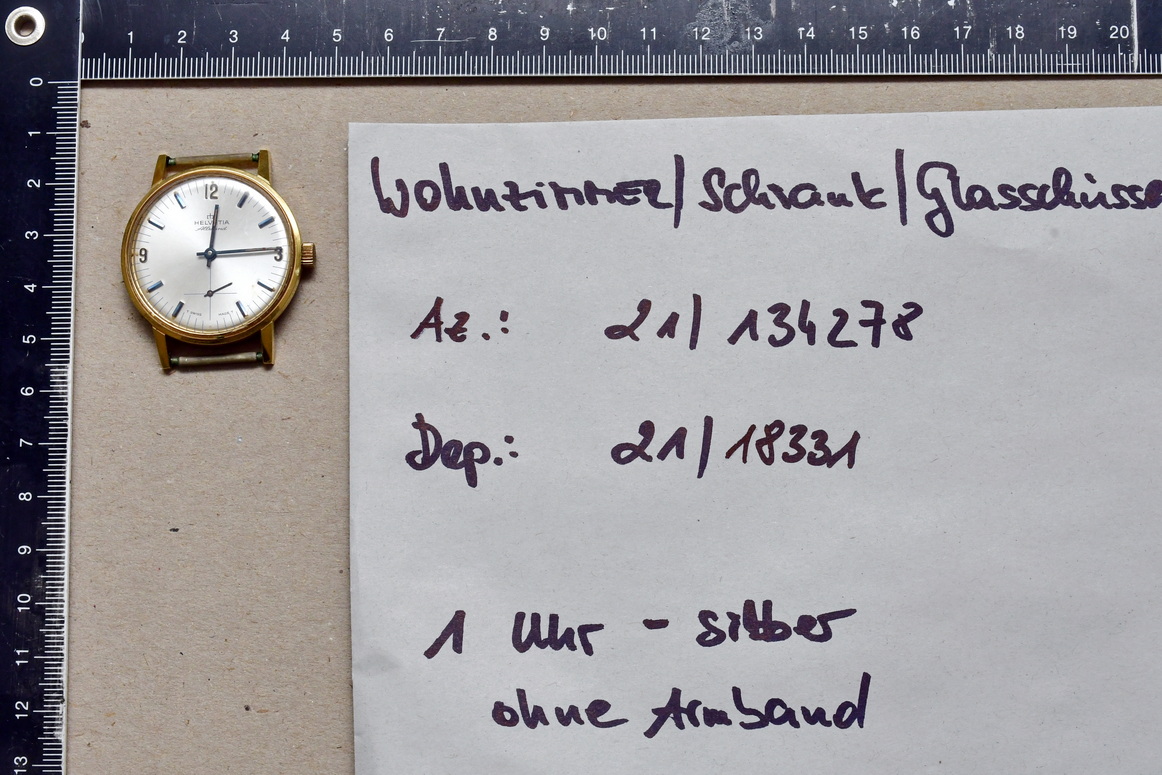 1 2 3 4 5 6 7 8 9 10 11 12 13 14 15 16 17 18 19 20
0
1
2
3
4
5
6
7
8
9
10
11
12
13
12
HELVETIA
9 3
Wohnzimmer/Schrank/Glasschüsse
Az.: 21/134278
Dep.: 21/18331
1 Uhr - silber
ohne Armband